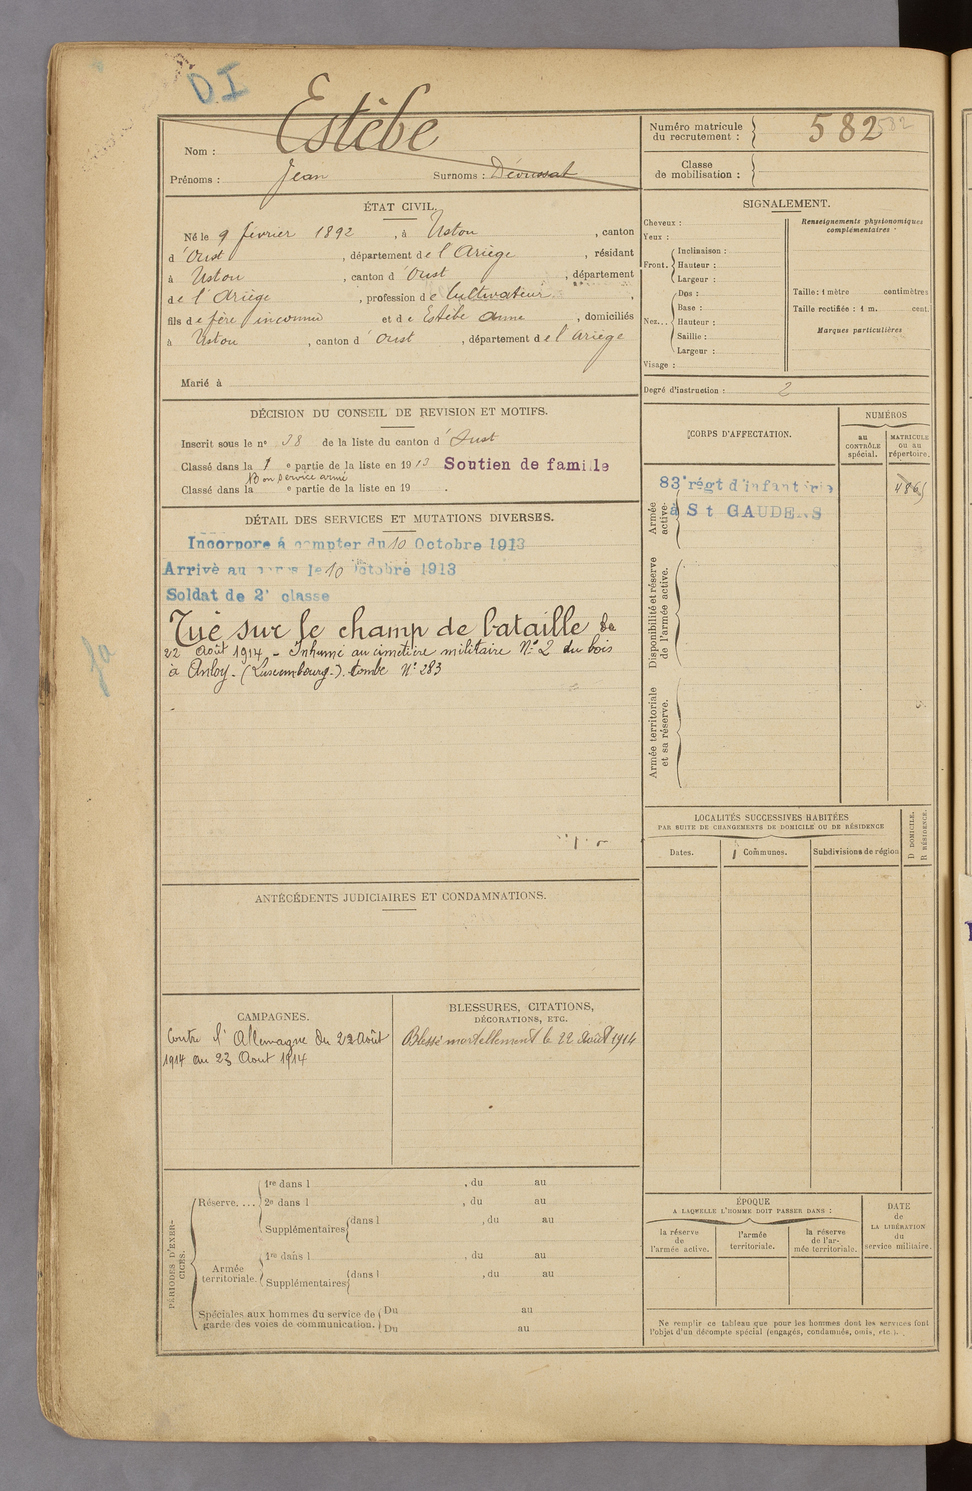 DI
Nom : Estèbe
Prénoms : Jean Surnoms : Dévussat
Numéro matricule du recrutement : 582
582
Classe de mobilisation :
ÉTAT CIVIL.
Né le 9 février 1892, à Ustou, canton
d'Oust, département de l'Ariège, résidant
à Ustou, canton d'Oust, département
de l'Ariège, profession de Cultivateur,
fils de père inconnu et de Estèbe Anne, domiciliés
à Ustou, canton d'Oust, département de l'Ariège
Marié à
SIGNALEMENT.
Cheveux :
Yeux :
Front. Inclinaison :
Hauteur :
Largeur :
Nez... Dos :
Base :
Hauteur :
Saillie :
Largeur :
Visage :
Renseignements physionomiques complémentaires :
Taille : 1 mètre centimètres
Taille rectifiée : 1 m. cent.
Marques particulières
Degré d'instruction : 2
DÉCISION DU CONSEIL DE REVISION ET MOTIFS.
Inscrit sous le n° 38 de la liste du canton d'Oust
Classé dans la 1e partie de la liste en 1913 Soutien de famille
Bon service armé
Classé dans la e partie de la liste en 19 .
DÉTAIL DES SERVICES ET MUTATIONS DIVERSES.
Incorporé à compter du 10 Octobre 1913
Arrivé au corps le 10 Octobre 1913
Soldat de 2e classe
Tué sur le champ de bataille le
22 Août 1914 - Inhumé au cimetière militaire N° 2 du bois
à Anloy - (Luxembourg -). tombe N° 283
CORPS D'AFFECTATION.
NUMÉROS
au CONTRÔLE spécial.
MATRICULE ou au répertoire.
Armée active.
83e régt d'infanterie
à St GAUDENS
4865
Disponibilité et réserve de l'armée active.
Armée territoriale et sa réserve.
LOCALITÉS SUCCESSIVES HABITÉES
PAR SUITE DE CHANGEMENTS DE DOMICILE OU DE RÉSIDENCE
Dates.
Communes.
Subdivisions de région.
D DOMICILE.
R RÉSIDENCE.
ANTÉCÉDENTS JUDICIAIRES ET CONDAMNATIONS.
CAMPAGNES.
Contre l'Allemagne du 22 Août
1914 au 23 Août 1914
BLESSURES, CITATIONS,
DÉCORATIONS, ETC.
Blessé mortellement le 22 Août 1914
PÉRIODES D'EXERCICES.
Réserve....
1re dans l , du au
2e dans l , du au
Supplémentaires dans l , du au
Armée territoriale.
1re dans l , du au
Supplémentaires dans l , du au
Spéciales aux hommes du service de garde des voies de communication.
Du au
Du au
ÉPOQUE
A LAQUELLE L'HOMME DOIT PASSER DANS :
la réserve de l'armée active.
l'armée territoriale.
la réserve de l'armée territoriale.
DATE de LA LIBÉRATION du service militaire.
Ne remplir ce tableau que pour les hommes dont les services font
l'objet d'un décompte spécial (engagés, condamnés, omis, etc.).